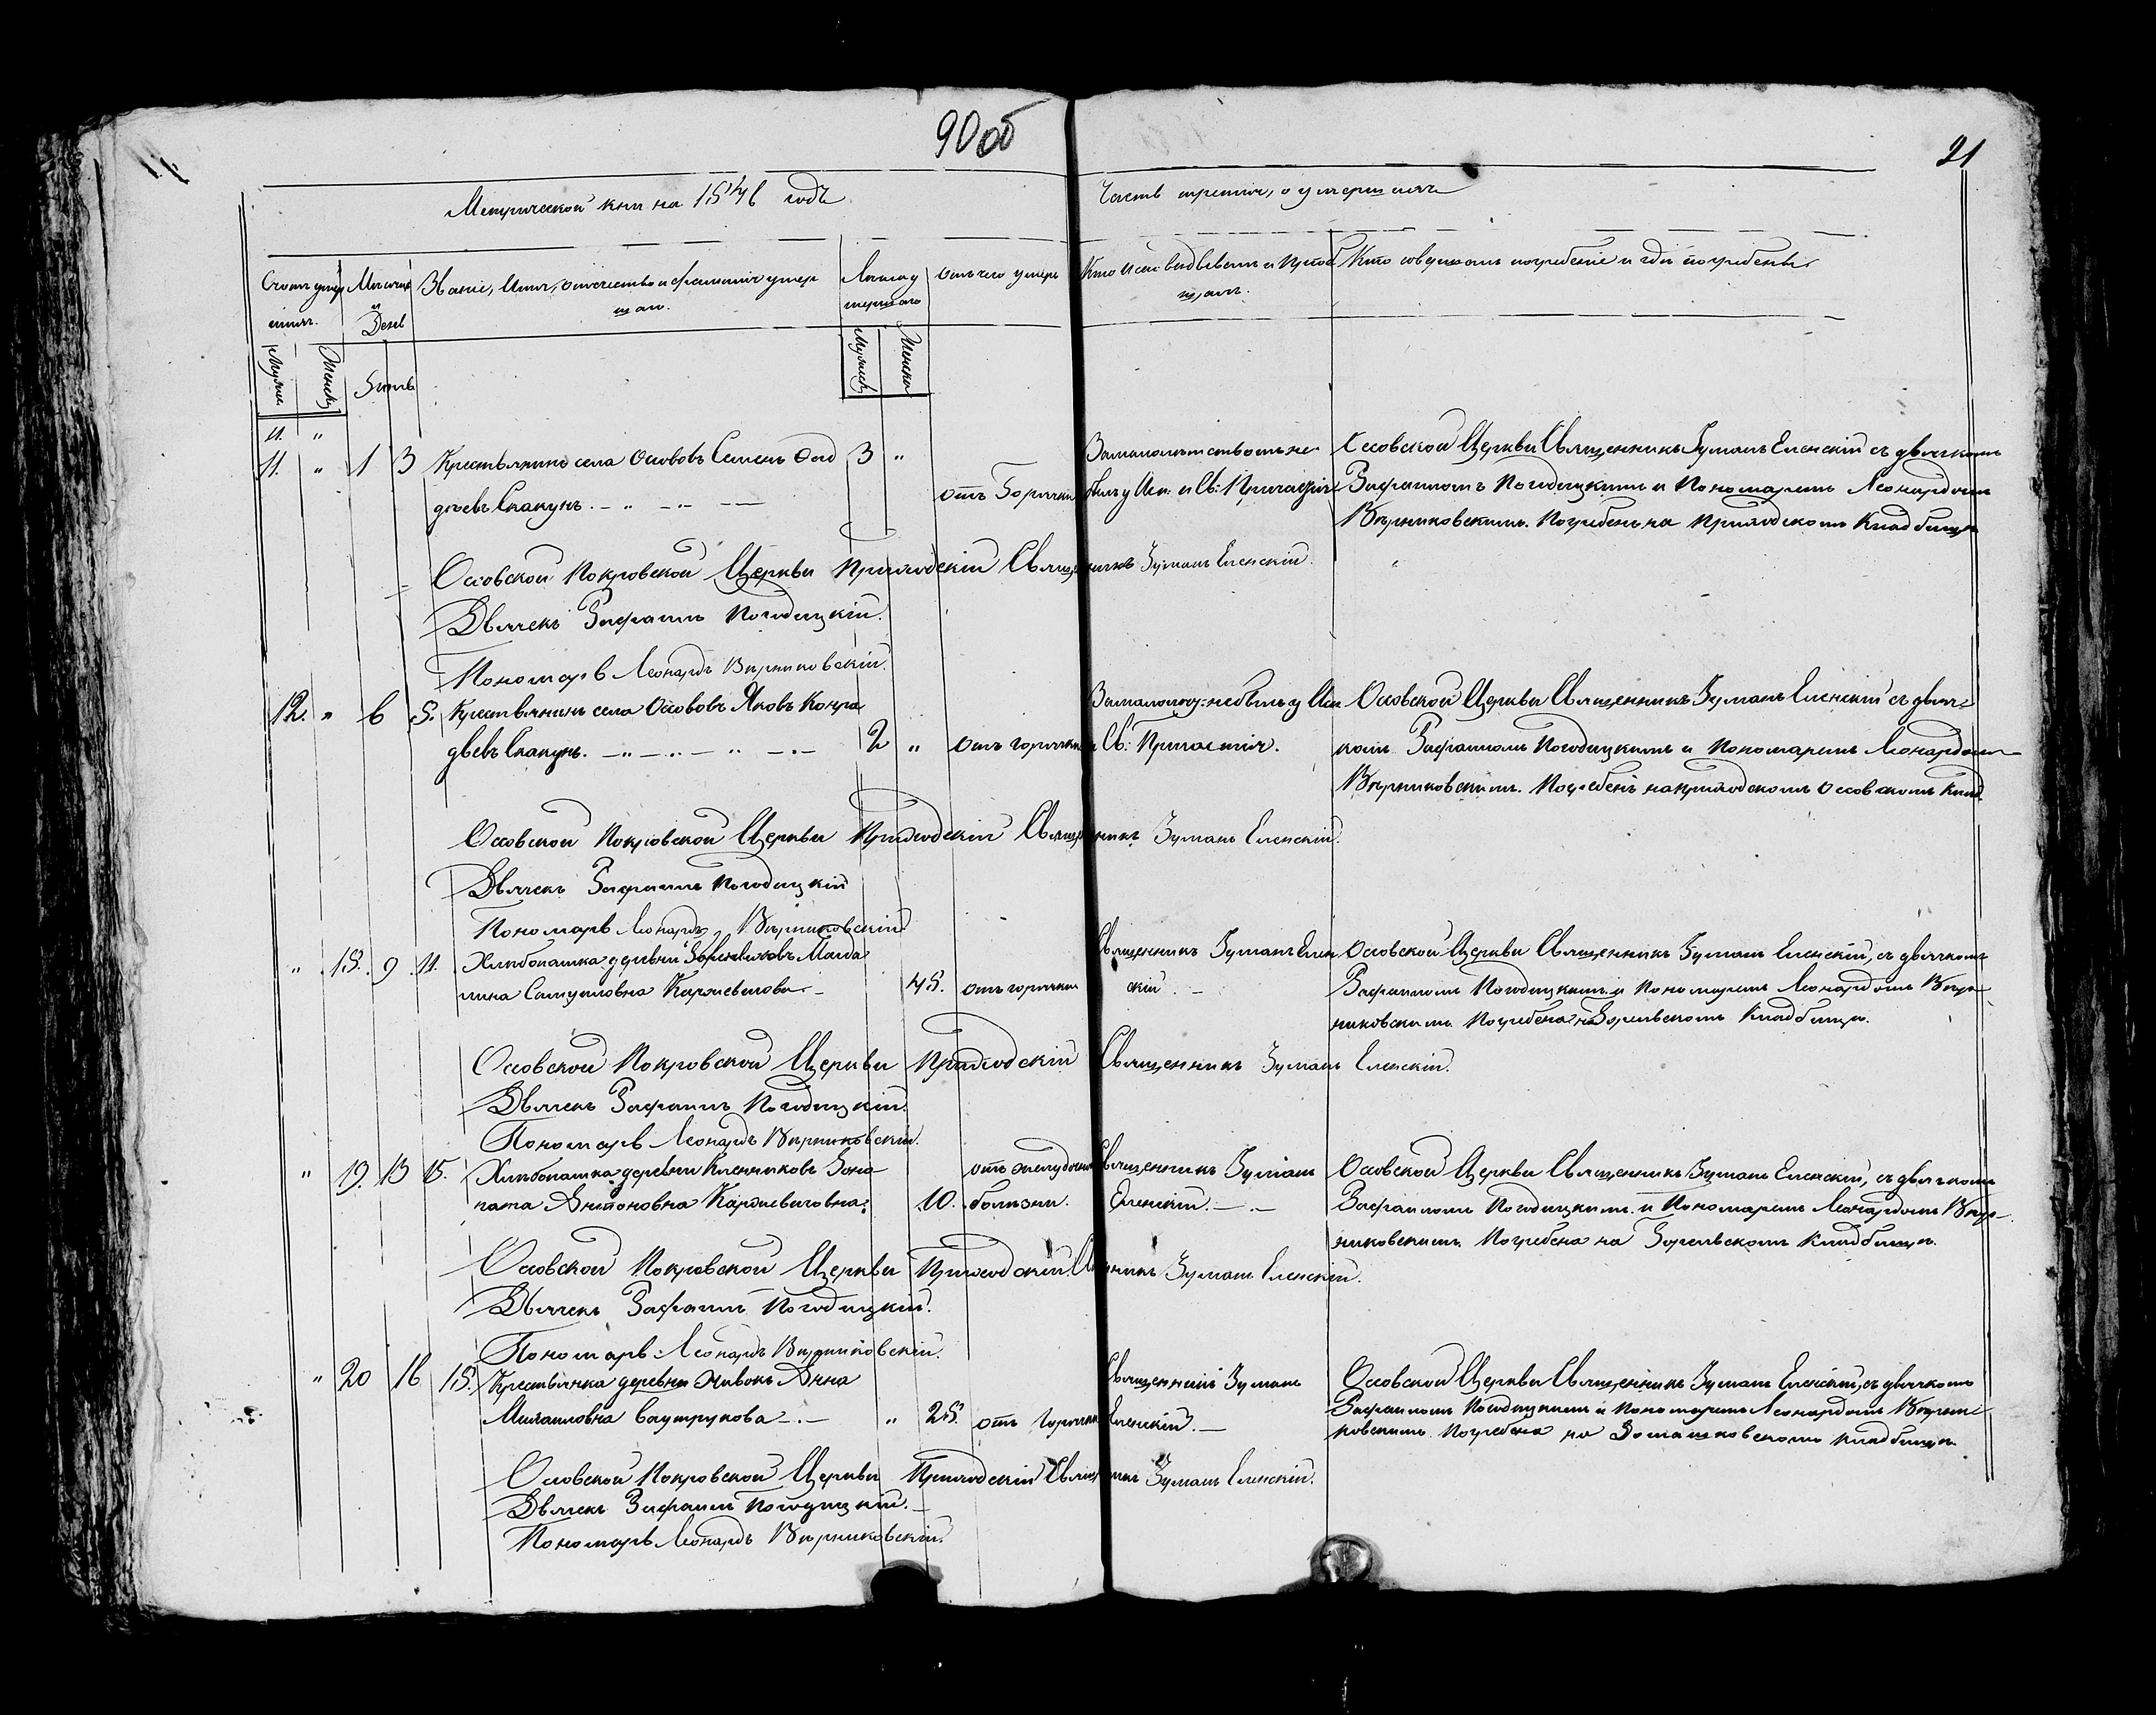 90об
21
Метрической кни на 1846 годъ
Часть третія, о умершихъ
Счетъ умер
шихъ.
Мѣсяцъ
и
День
Званіе, Имя, отчество и фамилія умер
шаго.
Лѣта у
мершаго
отъ чего умеръ
Кто исповѣдывалъ и Пріоб
щалъ.
Кто совершалъ погребеніе и гдѣ погребены.
Мужеск
Женск
Мужеск
Женска
11. "
11. " 1 3 Крестьянинъ села Оссововъ Семенъ Фад 3 "
дѣевъ Скакунъ.
отъ Горячки
За малолѣтствомъ не
былъ у Исп: и Св: Причастія
Оссовской Церкви Священникъ Еленскій съ дьячкомъ
Погодицкимъ и Пономаремъ Леонардомъ
Вѣрниковскимъ. Погребенъ на Приходскомъ Кладбищѣ
Оссовской Покровской Церкви Приходскій Священникъ Еленскій.
Дьячекъ Погодицкій.
Пономарь Леонардъ Вѣрниковскій.
12. " 6 8. Крестьянинъ села Оссововъ Яковъ Кондра
дьевъ Скакунъ. 2 " отъ горячки
За малолѣт: не былъ у Исп
и Св: Причастія.
Оссовской Церкви Священникъ Еленскій съ дьяч
комъ Погодицкимъ и Пономаремъ Леонардомъ
Вѣрниковскимъ. Погребенъ на приходскомъ Оссовскомъ Клад.
Оссовской Покровской Церкви Приходскій Священникъ Еленскій.
Дьячекъ Погодицкій
Пономарь Леонардъ Вѣрниковскій
" 18. 9 11. Хлѣбопашка деревни Магда
лина Самуиловна Каржевичова 48. отъ горячки
Священникъ Елен
скій.
Оссовской Церкви Священникъ Еленскій, съ дьячкомъ
Погодицкимъ и Пономаремъ Леонардомъ Вѣр
никовскимъ. Погребена на Зорельскомъ Кладбищѣ.
Оссовской Покровской Церкви Приходскій Священникъ Еленскій.
Дьячекъ Погодицкій.
Пономарь Леонардъ Вѣрниковскій.
" 19. 13 15. Хлѣбопашка деревни
Антоновна Каржевичовна. 10.
отъ желудочной
болѣзни.
Священникъ
Еленскій.
Оссовской Церкви Священникъ Еленскій, съ дьячкомъ
Погодицкимъ и Пономаремъ Леонардомъ Вѣр
никовскимъ. Погребена на Зорельскомъ Кладбищѣ.
Оссовской Покровской Церкви Приходскій Священникъ Еленскій.
Дьячекъ Погодицкій.
Пономарь Леонардъ Вѣрниковскій.
" 20 16 18. Крестьянка деревни Анна
Михаиловна " 28. отъ Горячки
Священникъ
Еленскій.
Оссовской Церкви Священникъ Еленскій, съ дьячкомъ
Погодицкимъ и Пономаремъ Леонардомъ Вѣрни
ковскимъ. Погребена на кладбищѣ.
Оссовской Покровской Церкви Приходскій Священникъ Еленскій.
Дьячекъ Погодицкій.
Пономарь Леонардъ Вѣрниковскій.